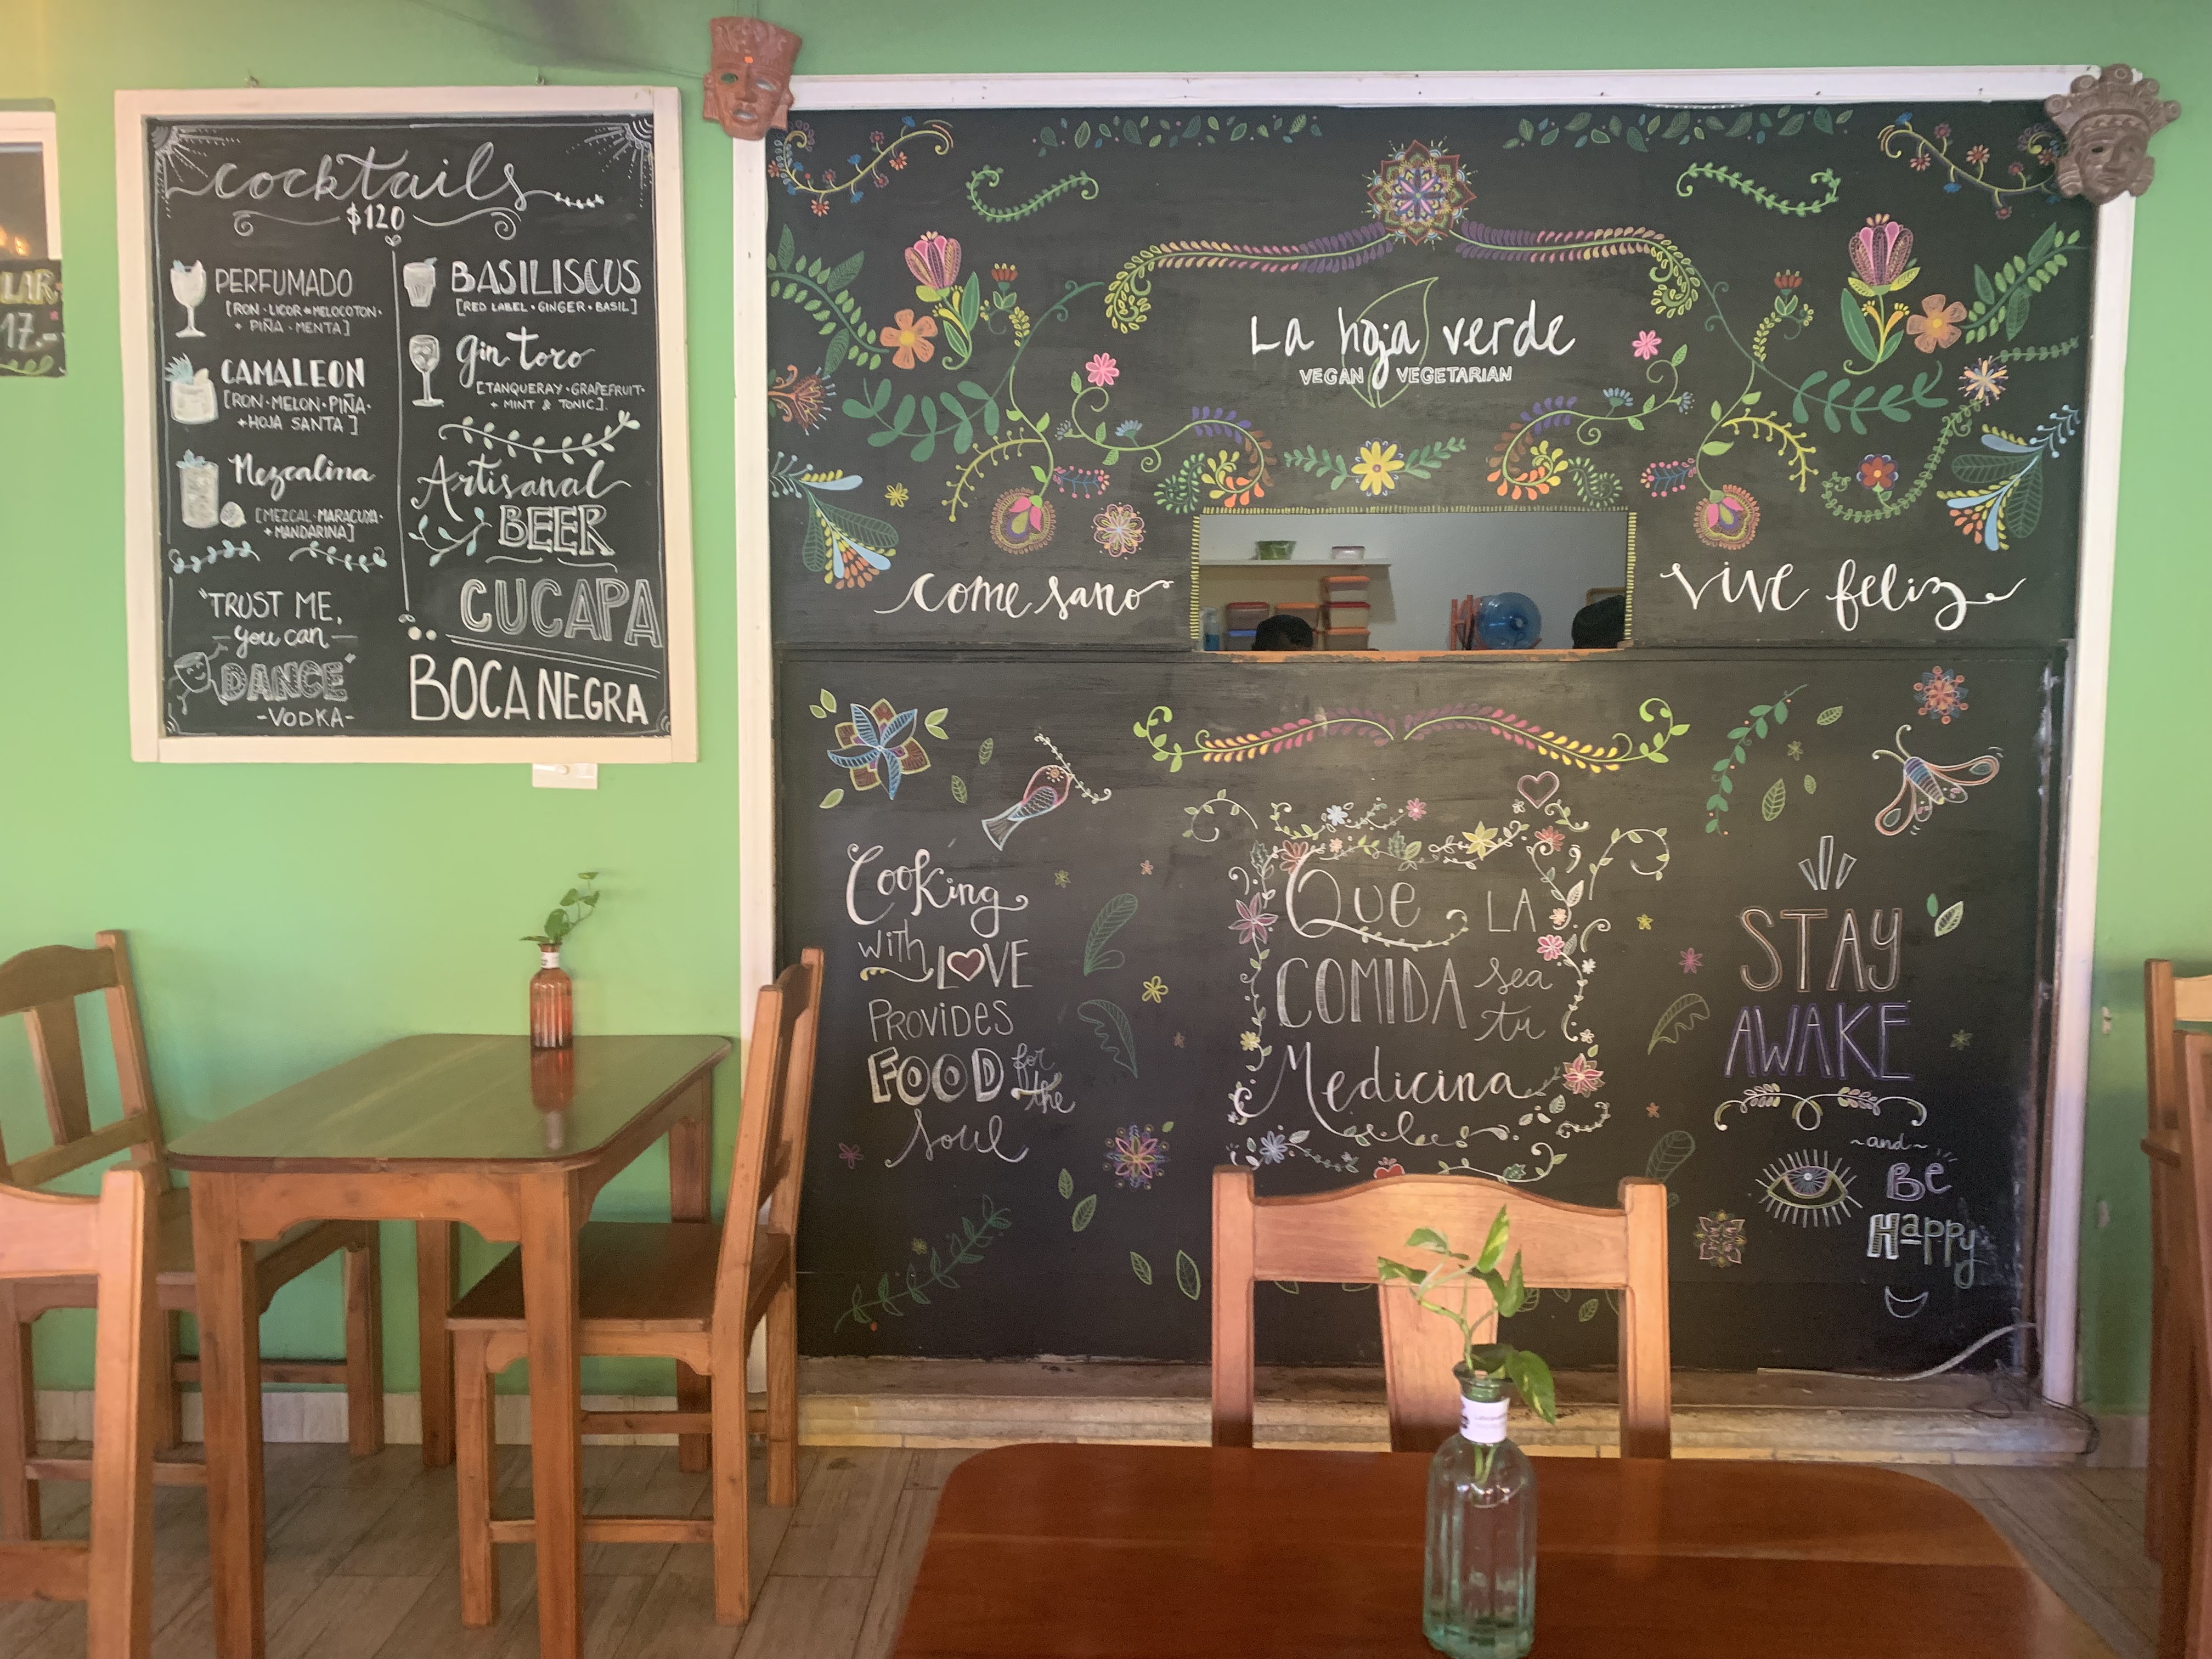 LAR
17.-
cocktails
$120
PERFUMADO
[RON · LICOR MELOCOTON ·
+ PIÑA · MENTA]
CAMALEON
[RON · MELON · PIÑA ·
+ HOJA SANTA]
Mezcalina
[MEZCAL · MARACUYA ·
+ MANDARINA]
"TRUST ME,
you can
DANCE"
- VODKA -
BASILISCUS
[RED LABEL · GINGER · BASIL]
gin toro
[TANQUERAY · GRAPEFRUIT ·
+ MINT & TONIC]
Artisanal
BEER
CUCAPA
BOCANEGRA
La hoja verde
VEGAN VEGETARIAN
come sano
vive feliz
Cooking
with LOVE
PROVIDES
FOOD for
the
Soul
Que LA
COMIDA sea
tu
Medicina
STAY
AWAKE
~and~
Be
Happy